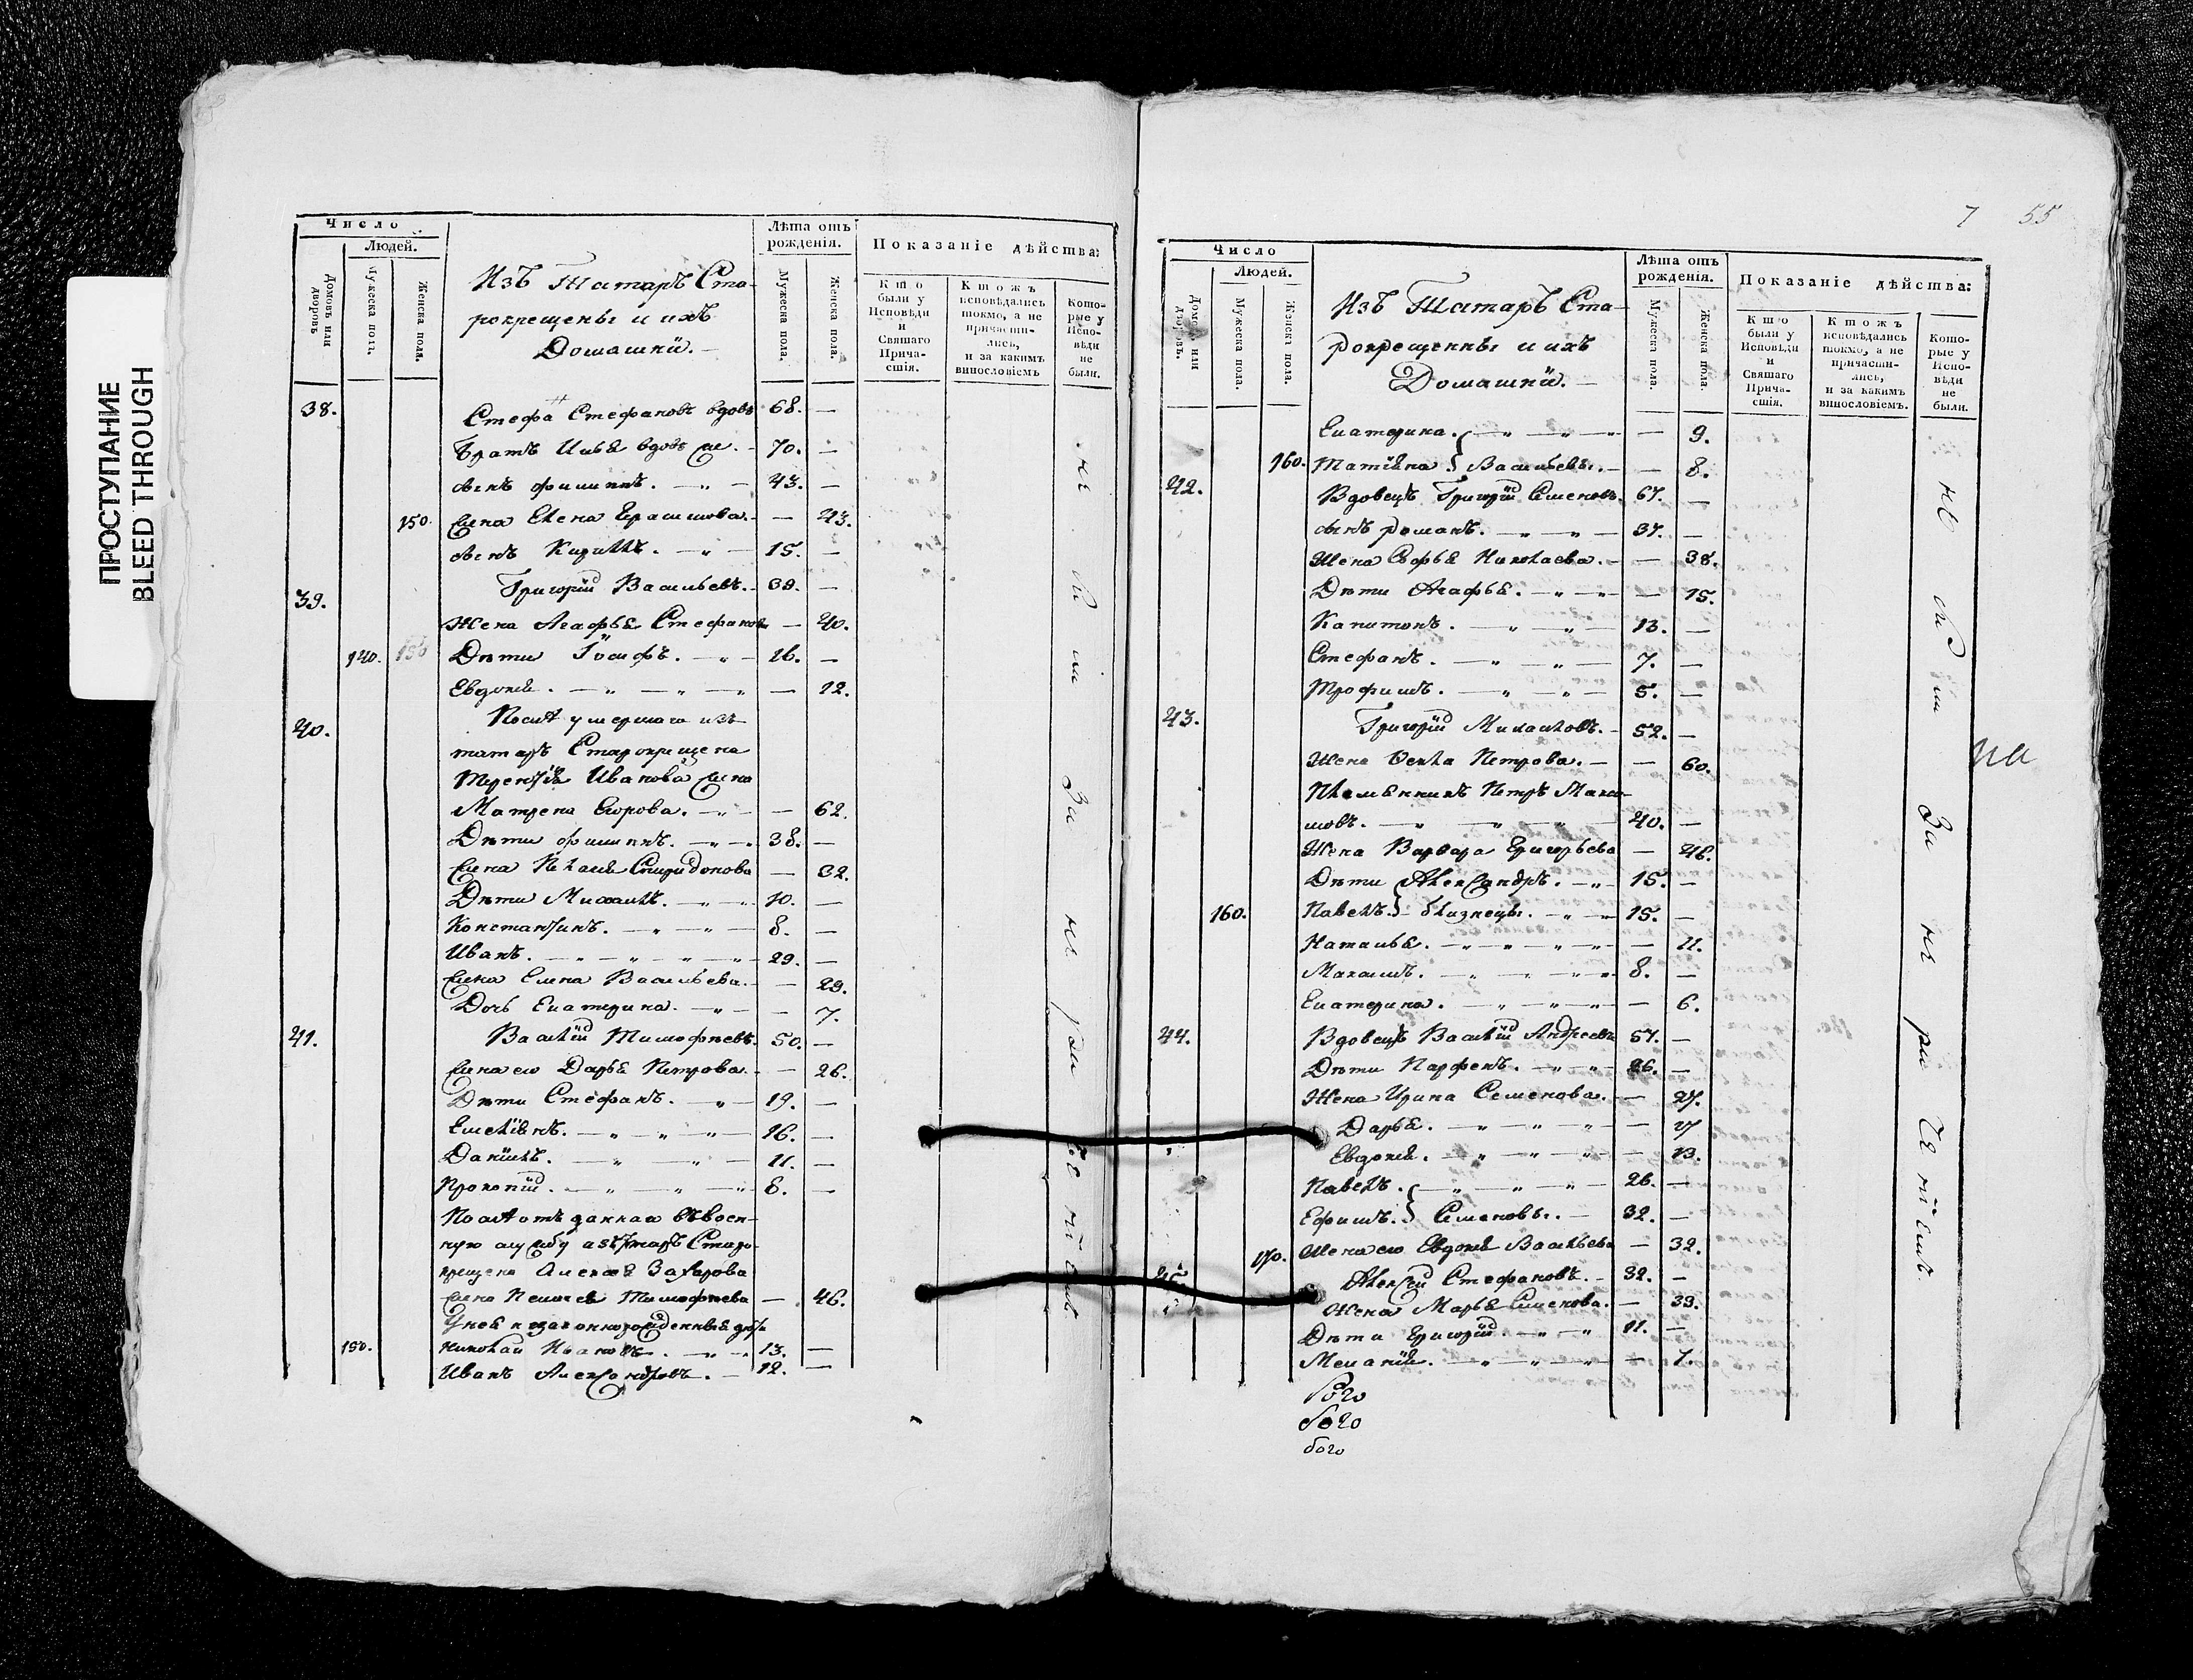 ПРОСТУПАНИЕ
BLEED THROUGH
Число
Людей.
Домовъ или дворовъ
Мужеска полу.
Женска пола.
Изъ Татаръ Ста-
рокрещены и ихъ
Домашнїи.
Лѣта отъ
рожденія.
Мужеска пола.
Женска пола.
Показаніе дѣйства:
Кто
были у
Исповѣди
и
Святаго
Прича-
стія.
Ктожъ
исповѣдались
токмо, а не
причасти-
лись,
и за какимъ
винословіемъ
Кото-
рые у
Испо-
вѣди
не
были.
38. Стефа Стефановъ вдовъ 68. —
Братъ Илья вдовъ 70. —
сынъ филиппъ. 43. —
150. Жена Елена Ерасимова. — 43.
сынъ Кириллъ. 15. —
39. Григорїй Васильевъ. 38. —
Жена Агафья Стефанова — 40.
140. 150 Дѣти Іосифъ. 16. —
Евдокия. — 12.
40. Послѣ умершаго изъ
татаръ Старокрещена
Терентїя Иванова жена
Матрена Егорова. — 62.
Дѣти филиппъ. 38. —
Жена Пелагия Спиридонова — 32.
Дѣти Михаилъ. 10. —
Константинъ. 8. —
Иванъ. 29. —
Жена Елена Васильева. — 29.
Дочь Екатерина. — 7.
41. Василїй Тимофѣевъ. 50. —
Жена его Дарья Петрова. — 26.
Дѣти Стефанъ. 19. —
Емелїянъ. 16. —
Данїилъ. 11. —
Прокопїй. 8. —
Послѣ отъданнаго въ воен-
ную службу изъ татаръ Старо-
крещена Алексея Захарова
жена Пелагея Тимофѣева — 46.
У нея незаконнорожденныя дѣти
150. Николай Ивановъ. 13. —
Иванъ Александровъ. 12. —
7 55
Число
Людей.
Домовъ или дворовъ.
Мужеска пола.
Женска пола.
Изъ Татаръ Ста-
рокрещенны и ихъ
Домашнїи.
Лѣта отъ
рожденія.
Мужеска пола.
Женска пола.
Показаніе дѣйства:
Кто
были у
Исповѣди
и
Святаго
Прича-
стія.
Ктожъ
исповѣдались
токмо, а не
причасти-
лись,
и за какимъ
винословіемъ.
Кото-
рые у
Испо-
вѣди
не
были.
Екатерина. — 9.
160. Татїяна } Васильевы. — 8.
42. Вдовецъ Григорїй Семеновъ. 67. —
сынъ романъ. 37. —
Жена Софья Николаева. — 38.
Дѣти Агафья. — 15.
Капитонъ. 13. —
Стефанъ. 7. —
Трофимъ. 5. —
43. Григорїй Михаиловъ. 52. —
Жена Фекла Петрова. — 60.
Племянникъ Петръ Макси-
мовъ. 40. —
Жена Варвара Григорьева — 46.
Дѣти Александръ. 15. —
160. Павелъ. } близнецы. 15. —
Наталья. — 11.
Максимъ. 8. —
Екатерина. — 6.
44. Вдовецъ Василїй Андреевъ 57. —
Дѣти Парфенъ. 26. —
Жена Ирина Семенова. — 27.
Дарья. — 17
Евдокия. — 13.
Павелъ. 26. —
Ефимъ. } Семеновы. 32. —
170. Жена его Евдокия Васильева — 32.
45. Алексїй Стефановъ. 32. —
Жена Марья Семенова. — 33.
Дѣти Григорїй. 11. —
Меланїя. — 7.
на